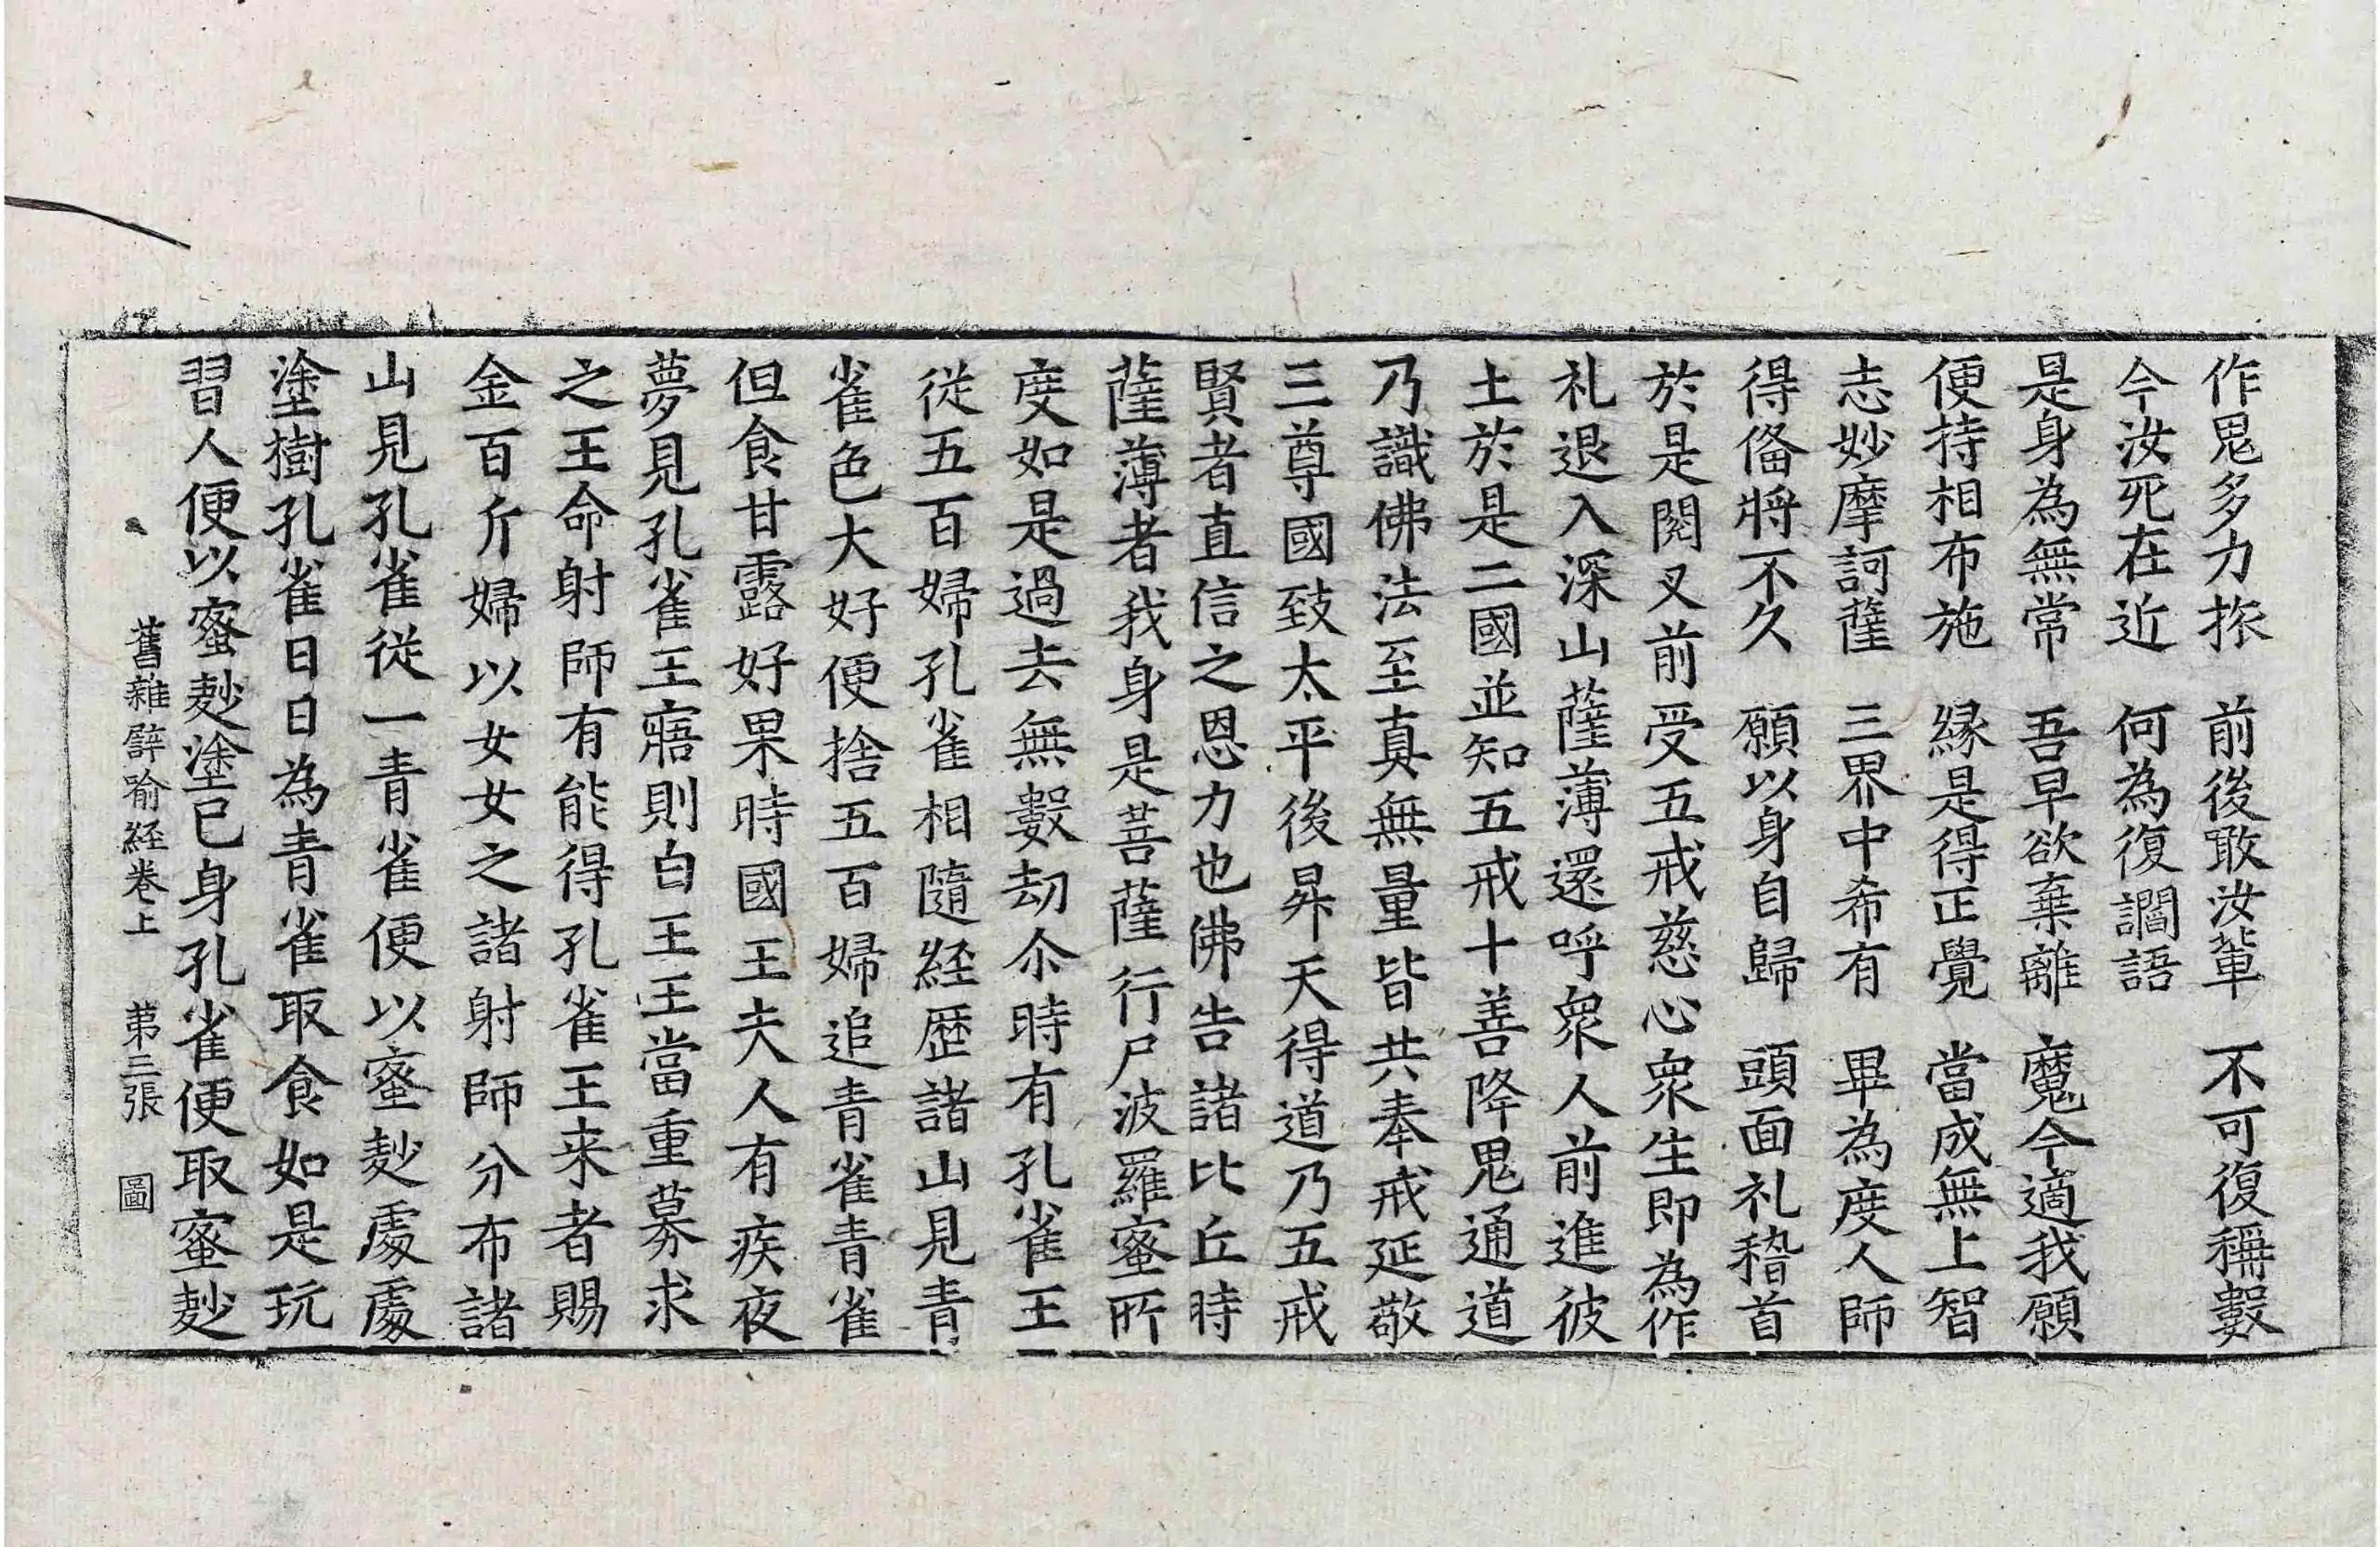 作鬼多力旅　前後敢汝軰　不可復稱數
今汝死在近　何為復讇語
是身為無常　吾早欲棄離　魔今適我願
便持相布施　縁是得正覺　當成無上智
志妙摩訶薩　三界中希有　畢為度人師
得俻將不久　願以身自歸　頭面礼稽首
於是閱叉前受五戒慈心衆生即為作
礼退入深山薩薄還呼衆人前進彼
土於是二國並知五戒十善降鬼通道
乃識佛法至真無量皆共奉戒延敬
三尊國致太平後昇天得道乃五戒
賢者直信之恩力也佛告諸比丘時
薩薄者我身是菩薩行尸波羅蜜所
度如是過去無數劫尒時有孔雀王
從五百婦孔雀相隨經歷諸山見青
雀色大好便捨五百婦追青雀青雀
但食甘露好果時國王夫人有疾夜
夢見孔雀王寤則白王王當重募求
之王命射師有能得孔雀王来者賜
金百斤婦以女女之諸射師分布諸
山見孔雀從一青雀便以蜜麨處處
塗樹孔雀日日為青雀取食如是玩
習人便以蜜麨塗已身孔雀便取蜜麨
舊雜譬喻經卷上　苐三張　圖